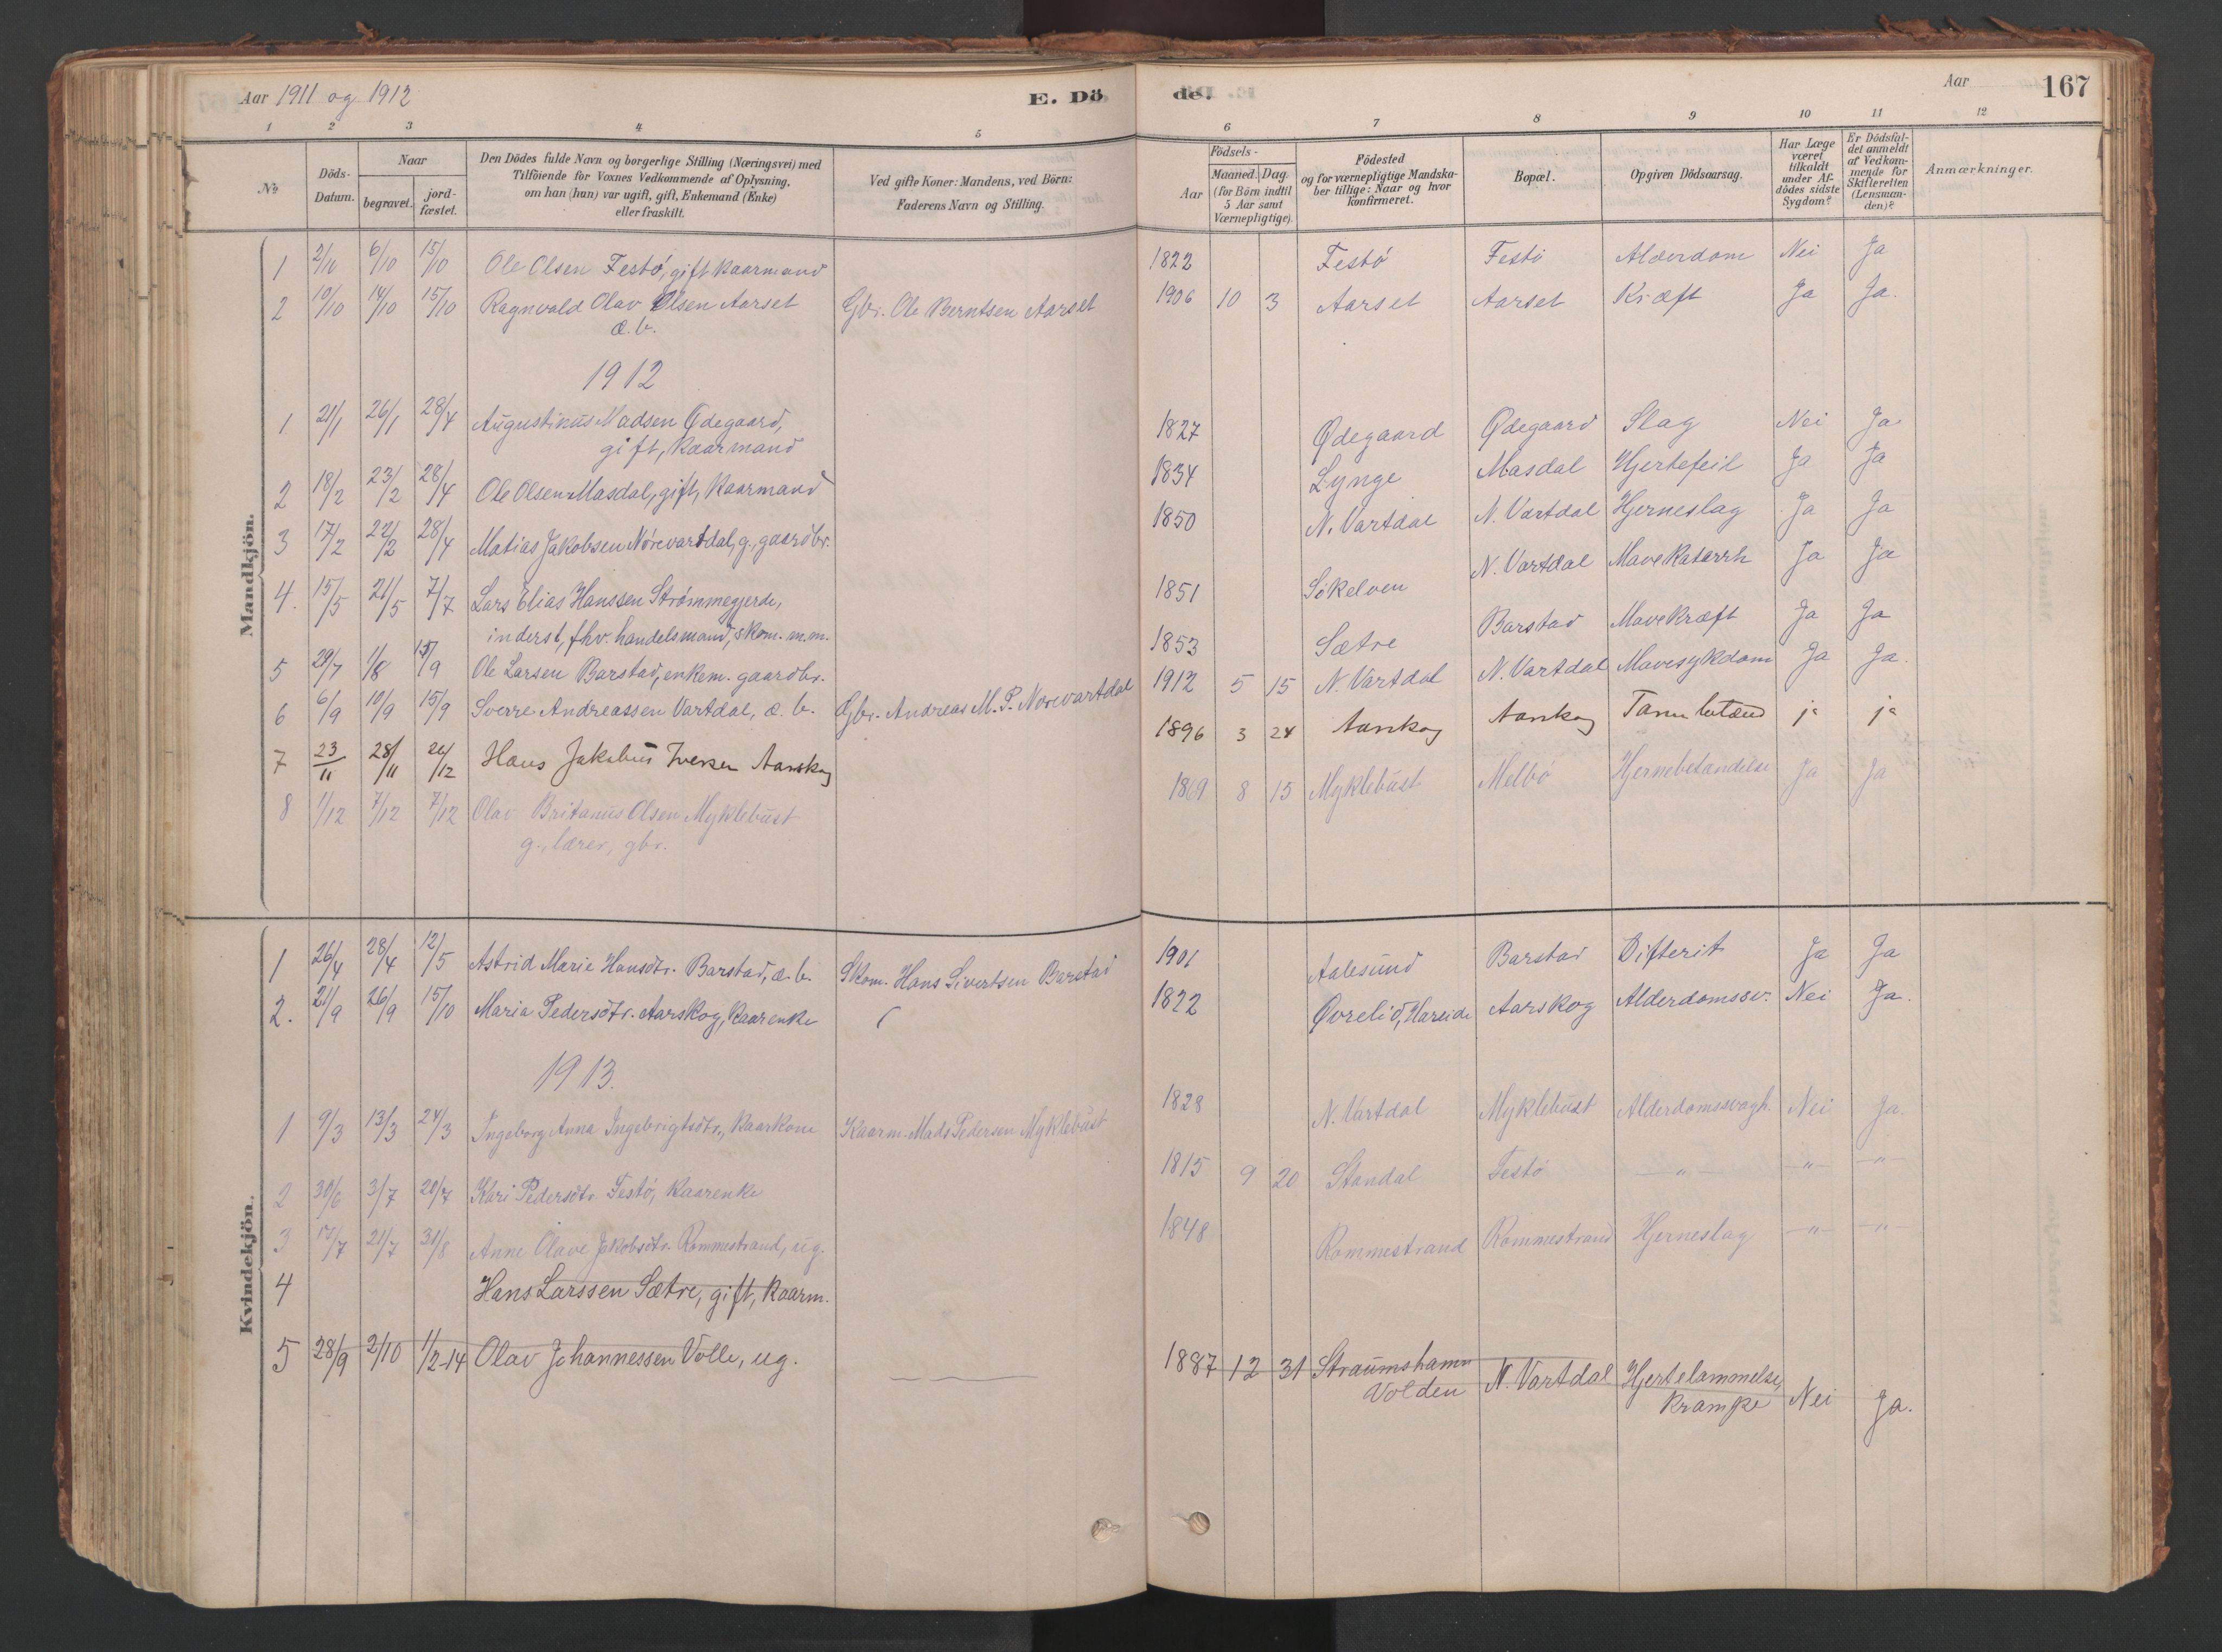 Aar 1911 og 1912 E. Dö de. Aar 167
1 2 3 4 5 6 7 8 9 10 11 12
No
Döds-Datum.
Naar begravet. jordfæstet.
Den Dödes fulde Navn og borgerlige Stilling (Næringsvei) med
Tilföiende for Voxnes Vedkommende af Oplysning,
om han (hun) var ugift, gift, Enkemand (Enke)
eller fraskilt.
Ved gifte Koner: Mandens, ved Börn:
Faderens Navn og Stilling.
Födsels-
Aar Maaned. Dag.
(for Börn indtil
5 Aar samt
Værnepligtige).
Födested
og for værnepligtige Mandska-
ber tillige: Naar og hvor
konfirmeret.
Bopæl.
Opgiven Dödsaarsag.
Har Læge
været
tilkaldt
under Af-
dödes sidste
Sygdom?
Er Dödsfal-
det anmeldt
af Vedkom-
mende for
Skifteretten
(Lensman-
den)?
Anmærkninger.
Mandkjön.
1 2/10 6/10 15/10 Ole Olsen Festö, gift kaarmand 1822 Festö Festö Alderdom Nei Ja
2 10/10 14/10 15/10 Ragnvald Olav Olsen Aarset Gbr. Ole Berntsen Aarset 1906 10 3 Aarset Aarset Kræft Ja Ja.
æ. b.
1912
1 21/1 26/1 28/4 Augustinus Madsen Ødegaard, 1827 Ødegaard Ødegaard Slag Nei Ja
gift, kaarmand
2 18/2 23/2 28/4 Ole Olsen Masdal, gift, kaarmand 1834 Lynge Masdal Hjertefeil Ja Ja
3 17/2 22/2 28/4 Matias Jakobsen Nörevartdal, g., gaardbr. 1850 N. Vartdal N. Vartdal Hjerneslag Ja Ja
4. 15/5 21/5 7/7 Lars Elias Hanssen Strömmegjerde, 1851 Sökelven N. Vartdal Mavekatarrh Ja Ja
inderst, fhv. handelsmand, skom. m.m.
5 29/7 1/8 15/9 Ole Larsen Barstad, enkem. gaardbr. 1853 Sætre Barstad Mavekræft Ja Ja
6 6/9 10/9 15/9 Sverre Andreassen Vartdal, æ. b. Gbr. Andreas M. P. Norevartdal 1912 5 15 N. Vartdal N. Vartdal Mavesykdom Ja Ja.
7 23/11 28/11 26/12 Hans Jakobus Iversen Aarskog 1896 3 24 Aarskog Aarskog ja ja
8 1/12 7/12 7/12 Olav Britanus Olsen Myklebust 1869 8 15 Myklebust Melbö Hjernebetændelse Ja Ja
g., lærer, gbr.
Kvindekjön.
1 26/4 28/4 12/5 Astrid Marie Hansdtr. Barstad, æ. b. Skom. Hans Sivertsen Barstad 1901 Aalesund Barstad Difterit Ja Ja
2. 21/9 26/9 15/10 Maria Pedersdtr. Aarskog, kaarenke 1822 Øvrelid, Hareide Aarskog Alderdomssv. Nei Ja.
1913.
1 9/3 13/3 24/3 Ingeborg Anna Ingebrigtsdtr., kaarkone Kaarm. Mads Pedersen Myklebust 1828 N. Vartdal Myklebust Alderdomssvagh. Nei Ja.
2 30/6 3/7 20/7 Kari Pedersdtr. Festö, kaarenke 1815 9 20 Standal Festö — " — — " — — " —
3 17/7 21/7 31/8 Anne Olave Jakobsdtr. Rommestrand, ug. 1848 Rommestrand Rommestrand Hjerneslag — " — — " —
4 Hans Larssen Sætre, gift, kaarm.
5 28/9 2/10 1/2-14 Olav Johannessen Volle, ug. 1887 12 31 Straumshamn N. Vartdal Hjertelammelse,
Volden krampe Nei Ja.